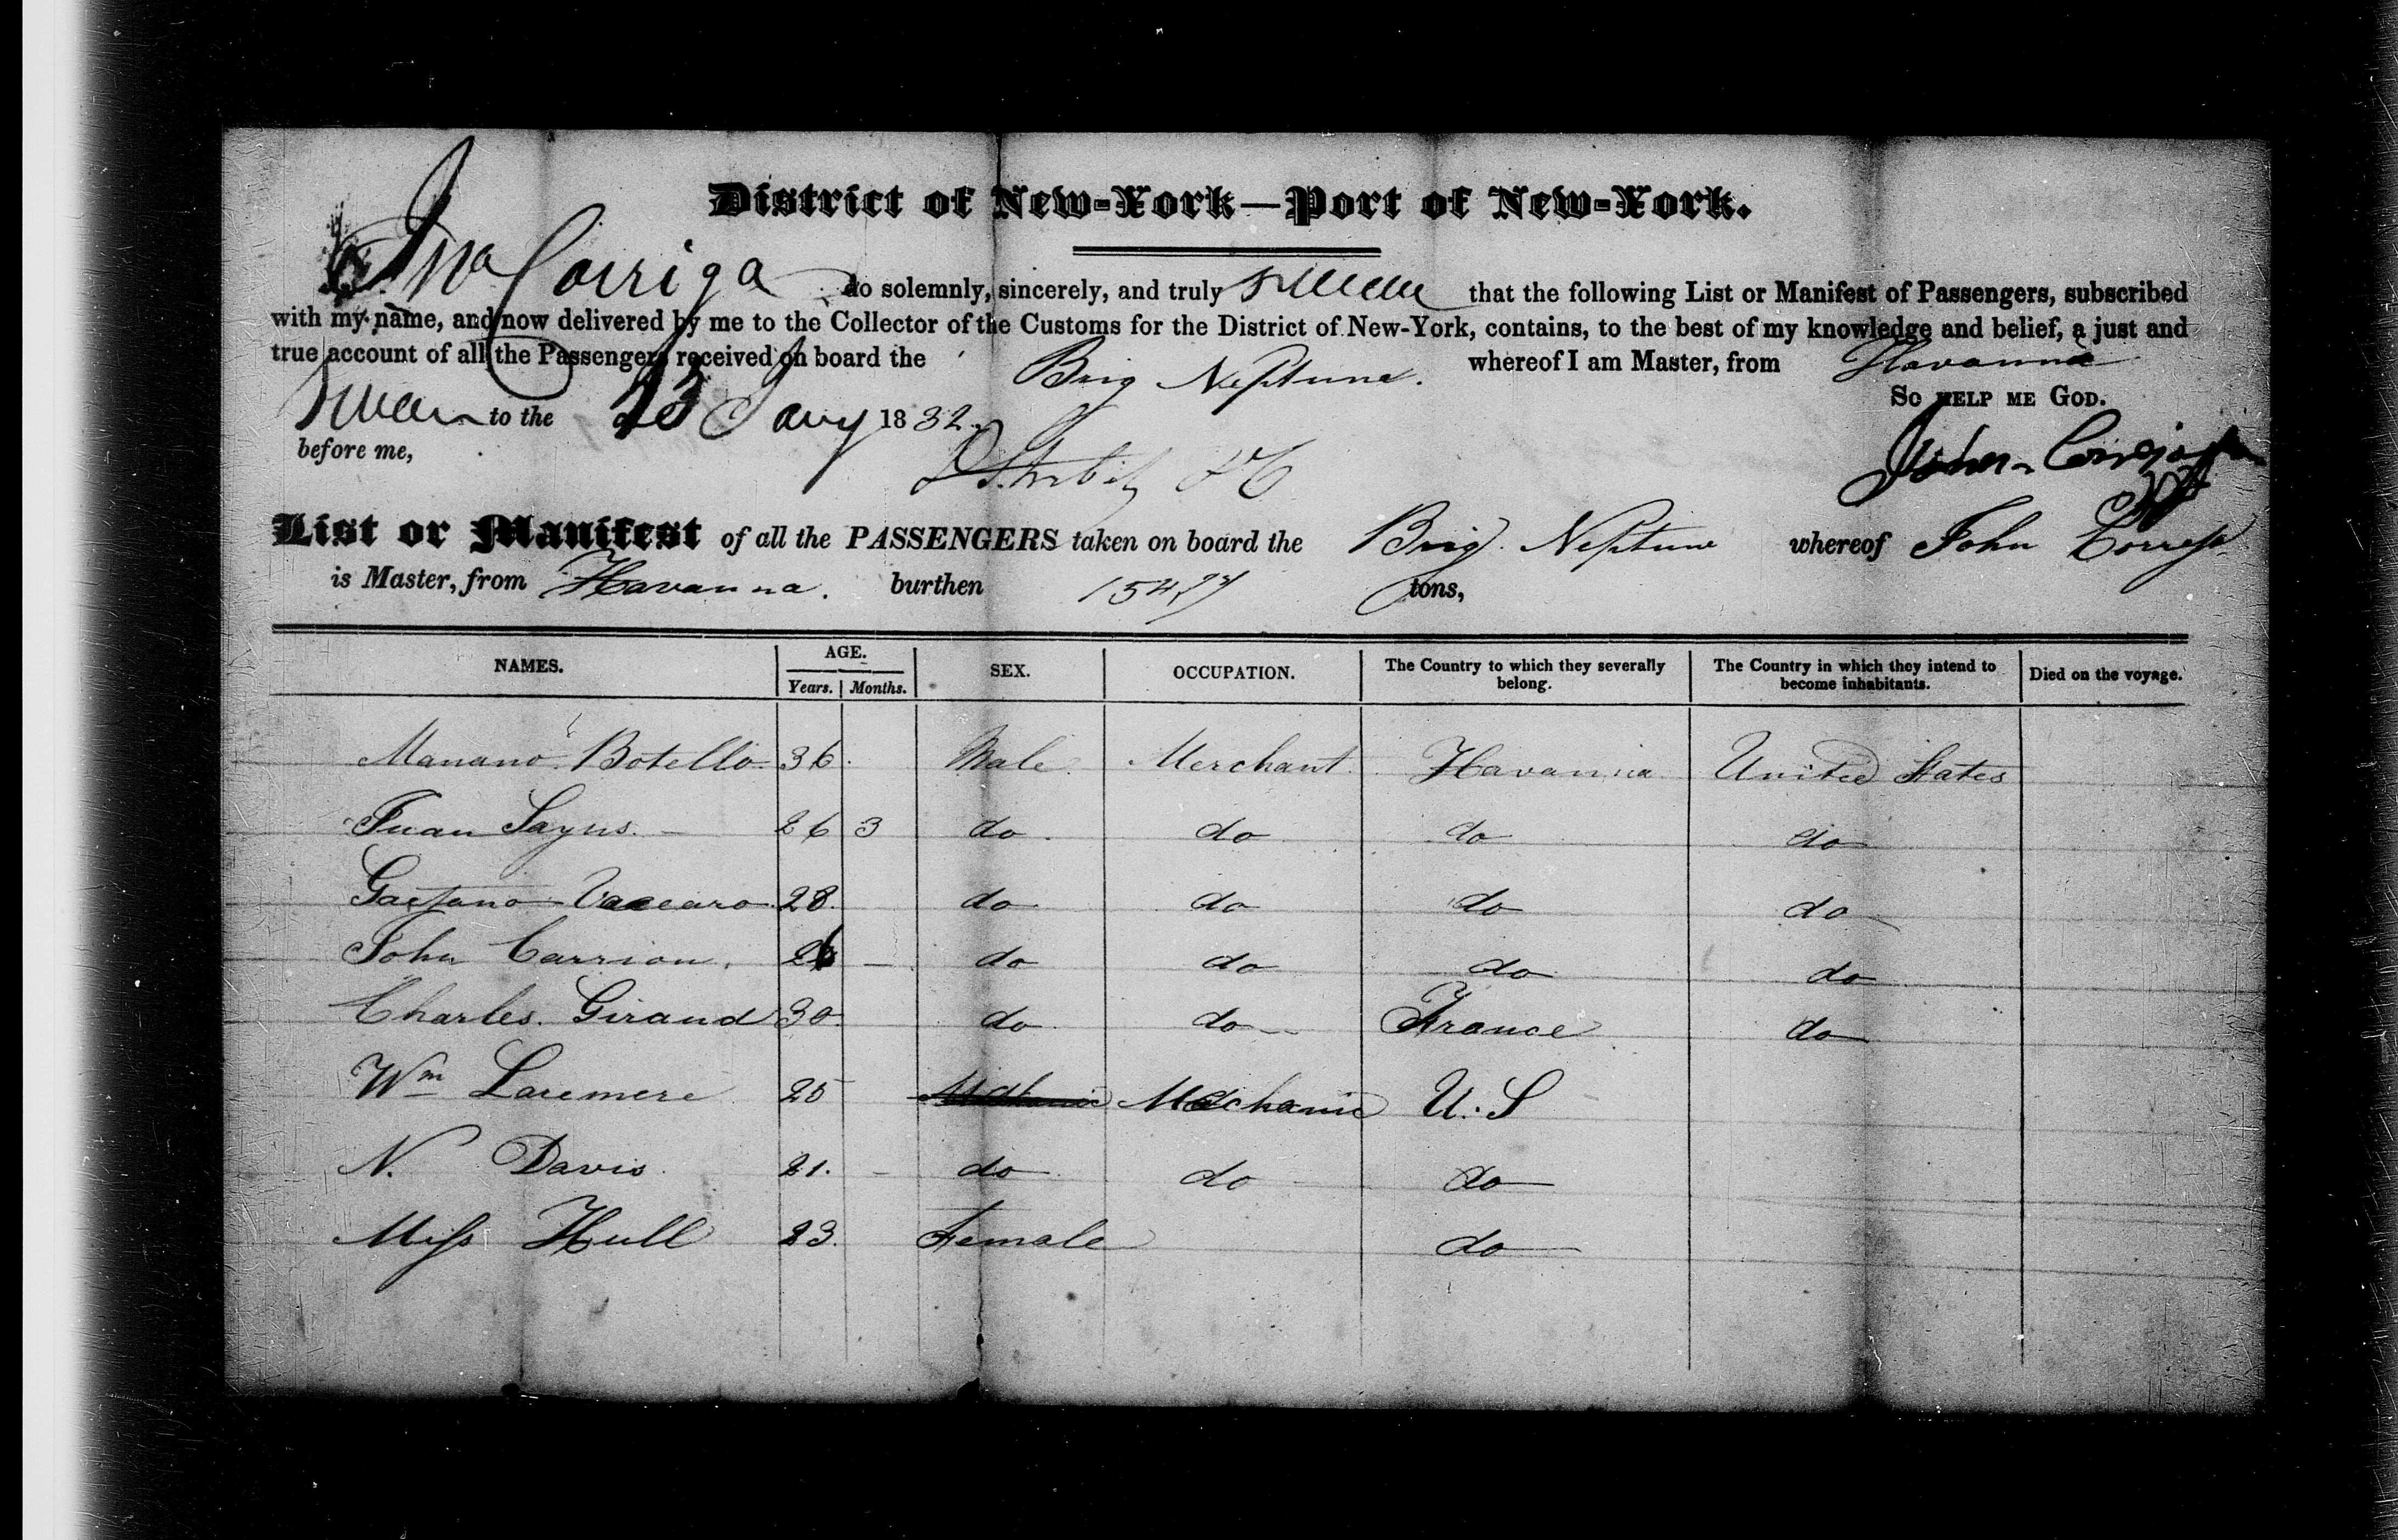 District of New-York—Port of New-York.
I, Jno Corriga do solemnly, sincerely, and truly swear that the following List or Manifest of Passengers, subscribed
with my name, and now delivered by me to the Collector of the Customs for the District of New-York, contains, to the best of my knowledge and belief, a just and
true account of all the Passengers received on board the Brig Neptune. whereof I am Master, from Havanna
So HELP ME GOD.
Sworn to the 23 Jany 1832.
before me,
John
List or Manifest of all the PASSENGERS taken on board the Brig Neptune whereof John
is Master, from Havanna. burthen tons,
NAMES. AGE. Years. Months. SEX. OCCUPATION. The Country to which they severally belong. The Country in which they intend to become inhabitants. Died on the voyage.
Manano Botello 36. Male Merchant. Havanna United States
Juan Sayns. 26 3 do do do do
Gaetano Vaccaro 28. do do do do
John Carrion. 26 — do do do do
Charles Giraud 30. do do France do
Wm Laremere 25 Mechanic U.S
N. Davis 21. do do do
Miss Hull 23. Female do